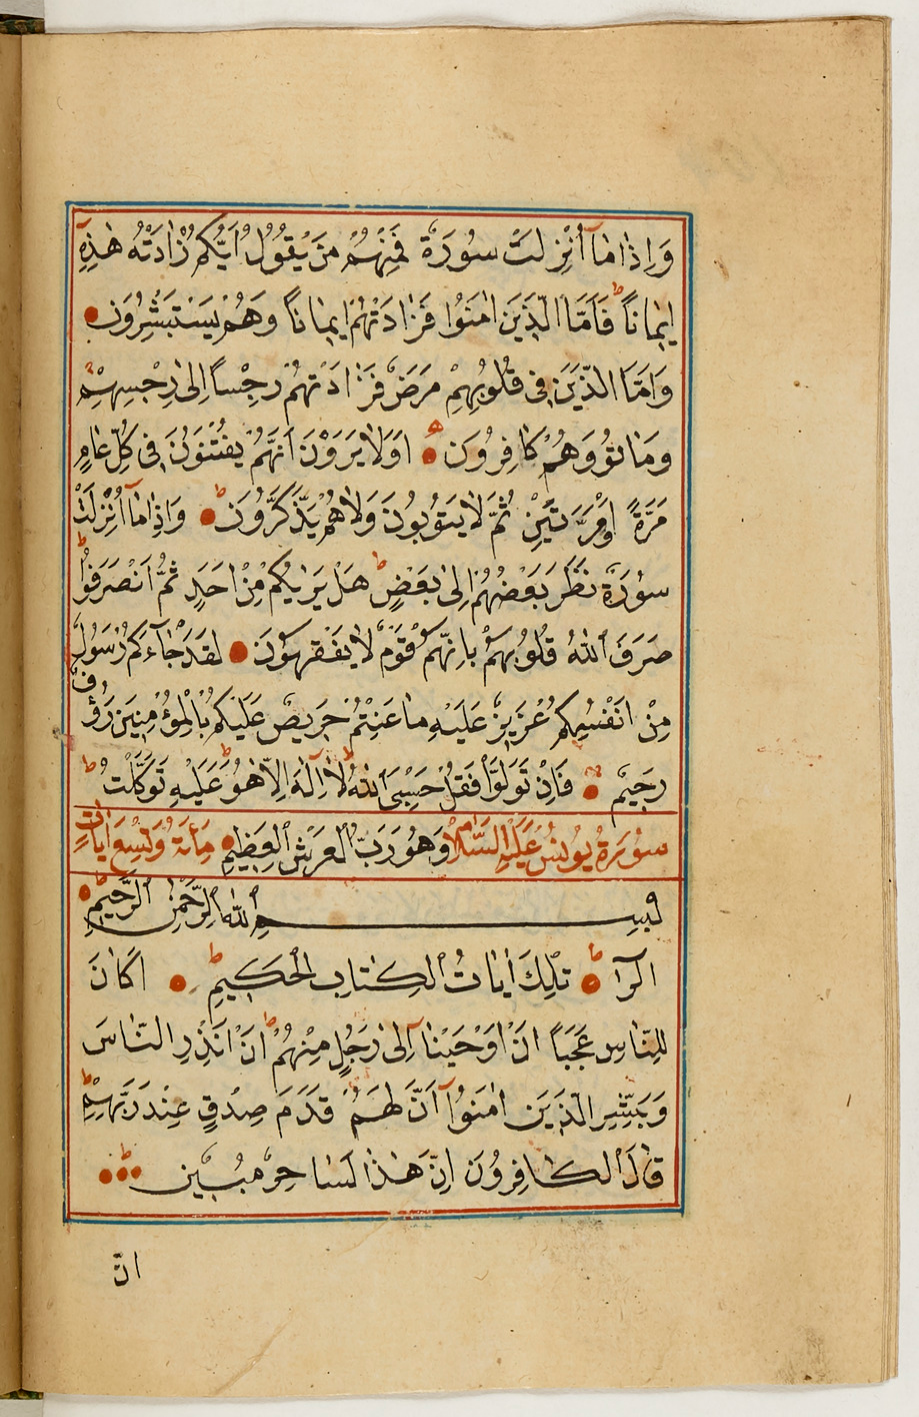 وَاِذَا مَآ اُنْزِلَتْ سُورَةٌ فَمِنْهُمْ مَنْ يَقُولُ اَيُّكُمْ زَادَتْهُ هٰذِهٖٓ
اِيمَانًا ط فَاَمَّا الَّذِينَ اٰمَنُوا فَزَادَتْهُمْ اِيمَانًا وَهُمْ يَسْتَبْشِرُونَ
وَاَمَّا الَّذِينَ فِى قُلُوبِهِمْ مَرَضٌ فَزَادَتْهُمْ رِجْسًا اِلٰى رِجْسِهِمْ
وَمَاتُوا وَهُمْ كَافِرُونَ اَوَلَا يَرَوْنَ اَنَّهُمْ يُفْتَنُونَ فِى كُلِّ عَامٍ
مَرَّةً اَوْ مَرَّتَيْنِ ثُمَّ لَا يَتُوبُونَ وَلَا هُمْ يَذَّكَّرُونَ ط وَاِذَا مَآ اُنْزِلَتْ
سُورَةٌ نَظَرَ بَعْضُهُمْ اِلٰى بَعْضٍ ط هَلْ يَرٰيكُمْ مِنْ اَحَدٍ ثُمَّ انْصَرَفُوا ط
صَرَفَ اللّٰهُ قُلُوبَهُمْ بِاَنَّهُمْ قَوْمٌ لَا يَفْقَهُونَ لَقَدْ جَآءَكُمْ رَسُولٌ
مِنْ اَنْفُسِكُمْ عَزِيزٌ عَلَيْهِ مَا عَنِتُّمْ حَرِيصٌ عَلَيْكُمْ بِالْمُؤْمِنِينَ رَؤُفٌ
رَحِيمٌ فَاِنْ تَوَلَّوْا فَقُلْ حَسْبِىَ اللّٰهُ لَآ اِلٰهَ اِلَّا هُوَ ط عَلَيْهِ تَوَكَّلْتُ ط
سُورَةُ يُونُسَ عَلَيْهِ السَّلَامُ وَهُوَ رَبُّ الْعَرْشِ الْعَظِيمِ مِائَةٌ وَتِسْعُ اٰيَاتٍ
بِسْمِ اللّٰهِ الرَّحْمٰنِ الرَّحِيمِ
الٓرٰ ط تِلْكَ اٰيَاتُ الْكِتَابِ الْحَكِيمِ ط اَكَانَ
لِلنَّاسِ عَجَبًا اَنْ اَوْحَيْنَآ اِلٰى رَجُلٍ مِنْهُمْ اَنْ اَنْذِرِ النَّاسَ
وَبَشِّرِ الَّذِينَ اٰمَنُوٓا اَنَّ لَهُمْ قَدَمَ صِدْقٍ عِنْدَ رَبِّهِمْ ط
قَالَ الْكَافِرُونَ اِنَّ هٰذَا لَسَاحِرٌ مُبِينٌ ط
انّ